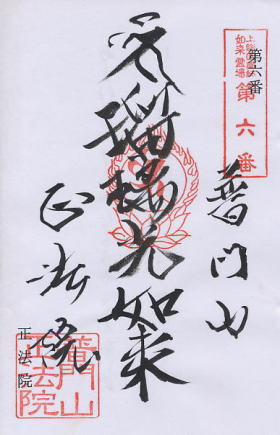 如来霊場
第六番
第六番
普門山
瑠璃光如来
正法院
正法院
普門山
正法院